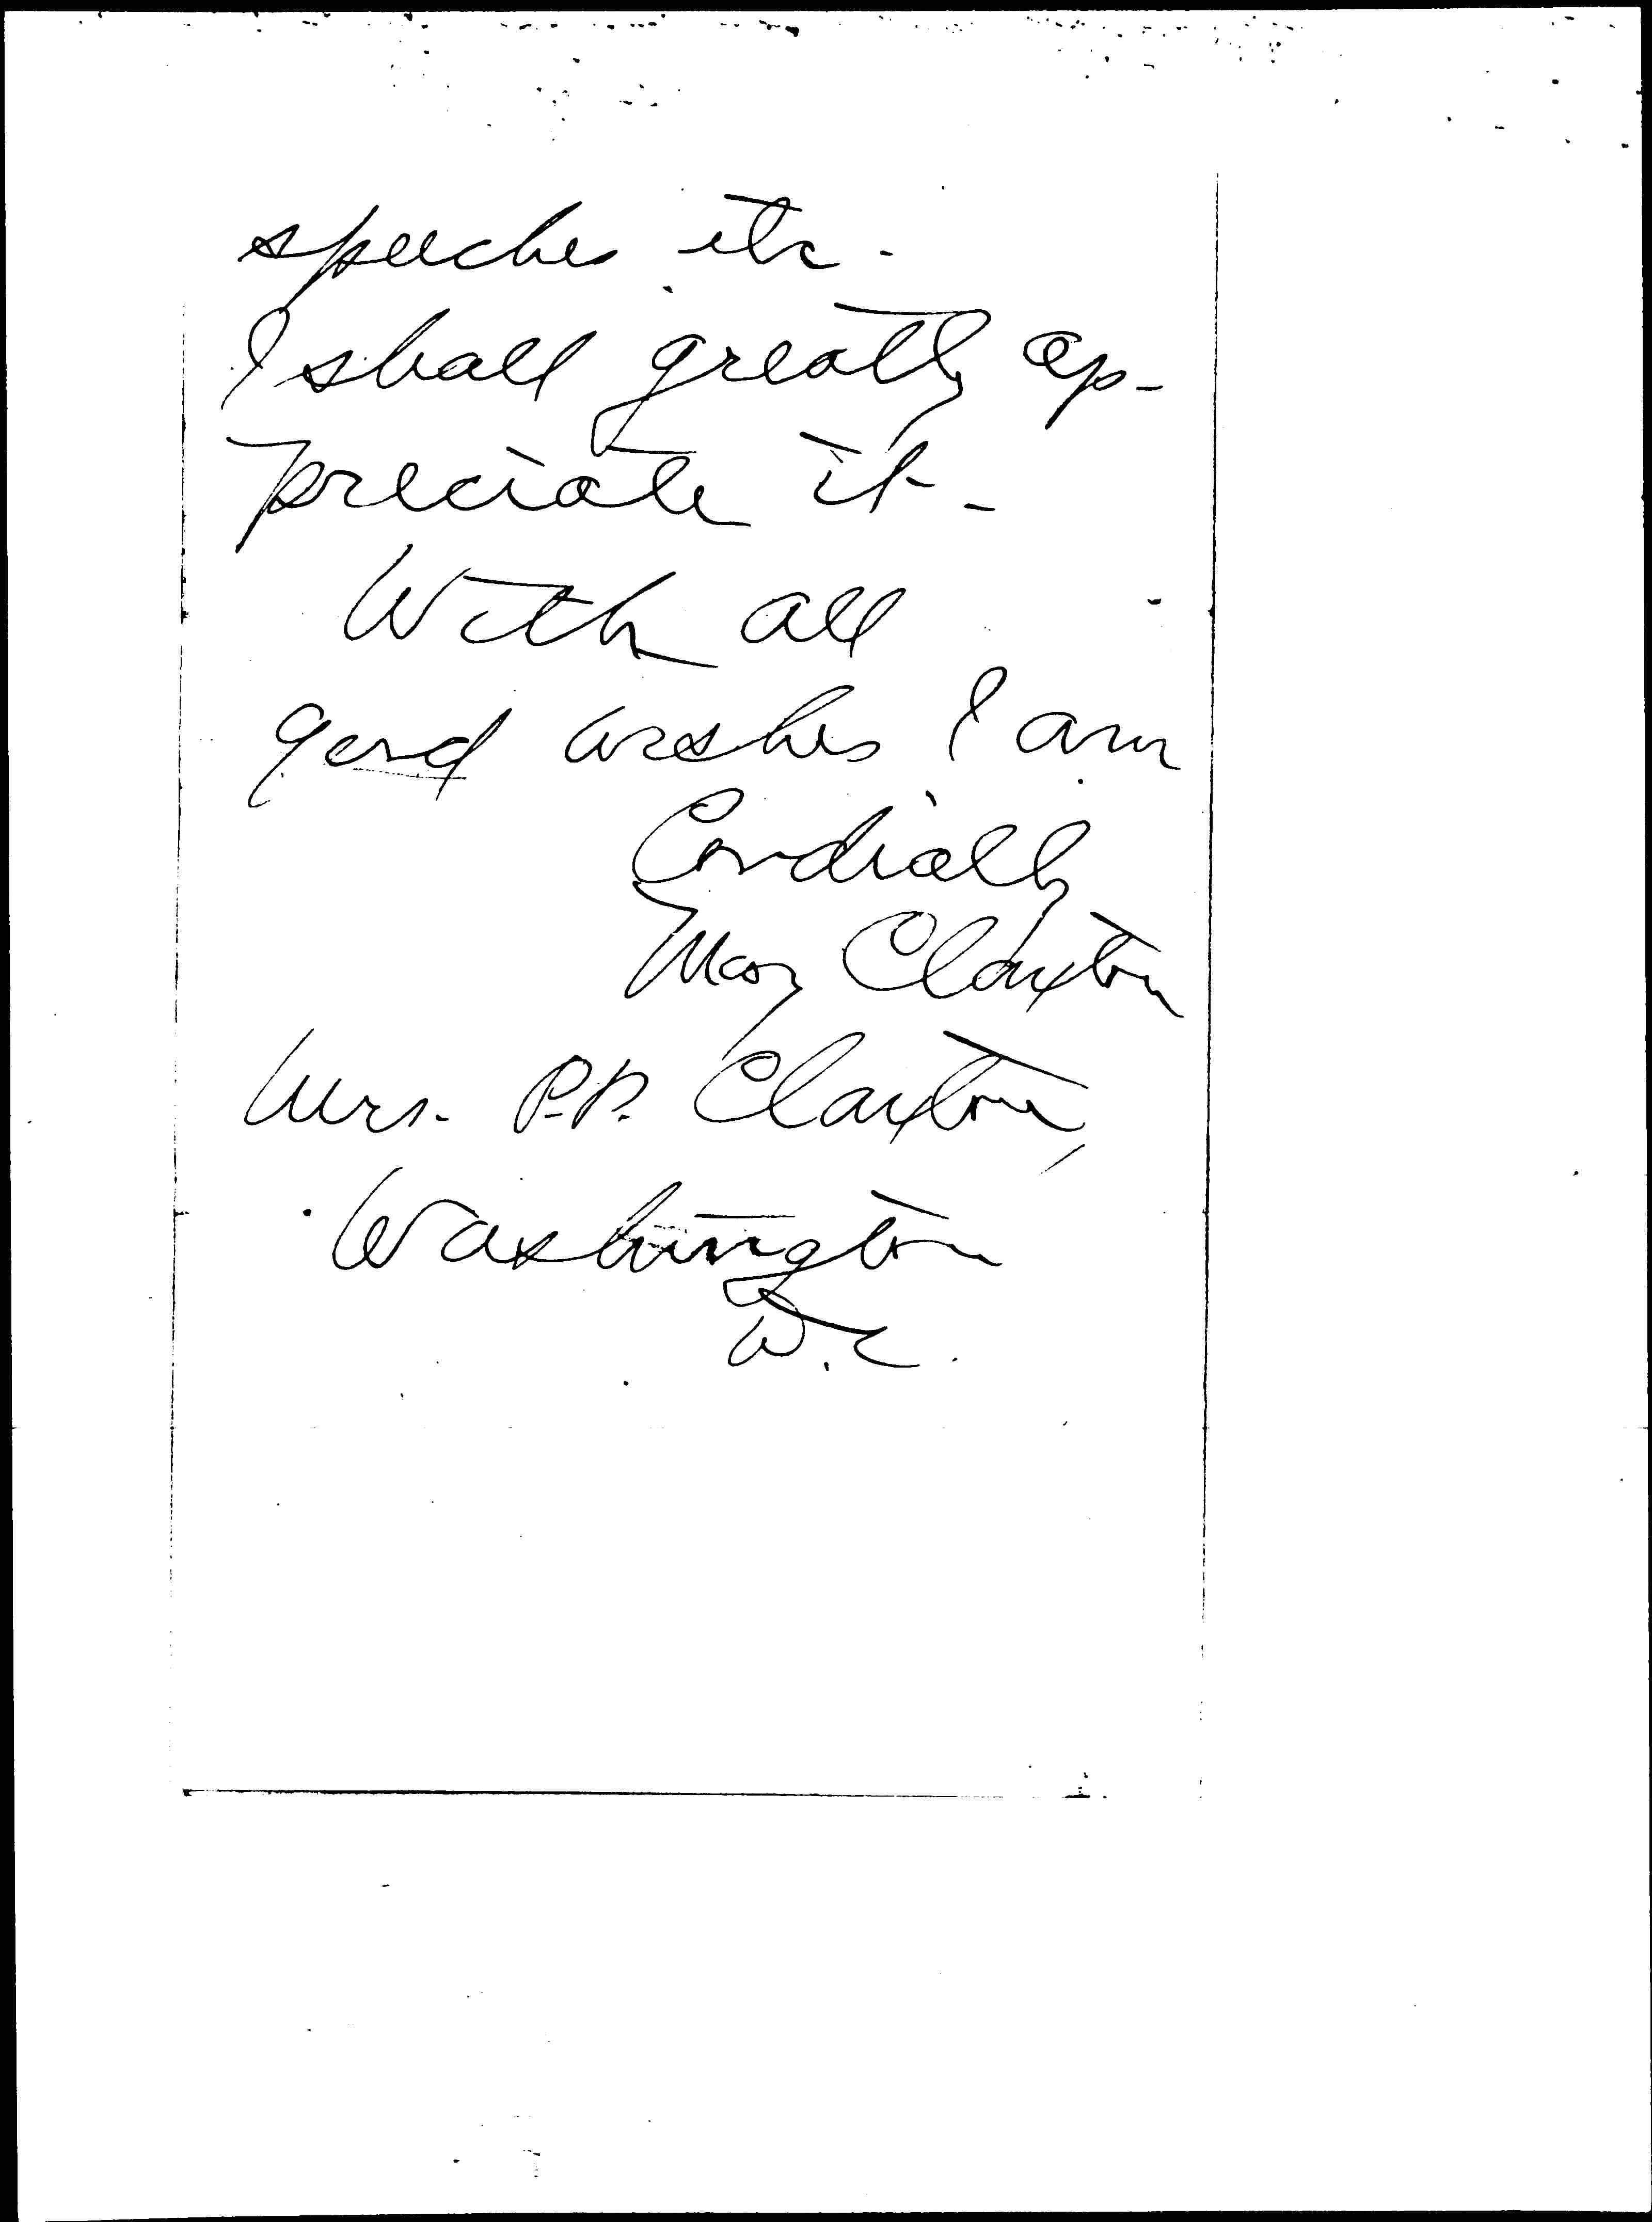 speeches etc -
I shall greatly ap-
preciate it -
With all
good wishes I am
Cordially
Mary Claxton
Mrs. P.P. Claxton,
Washington
D.C.